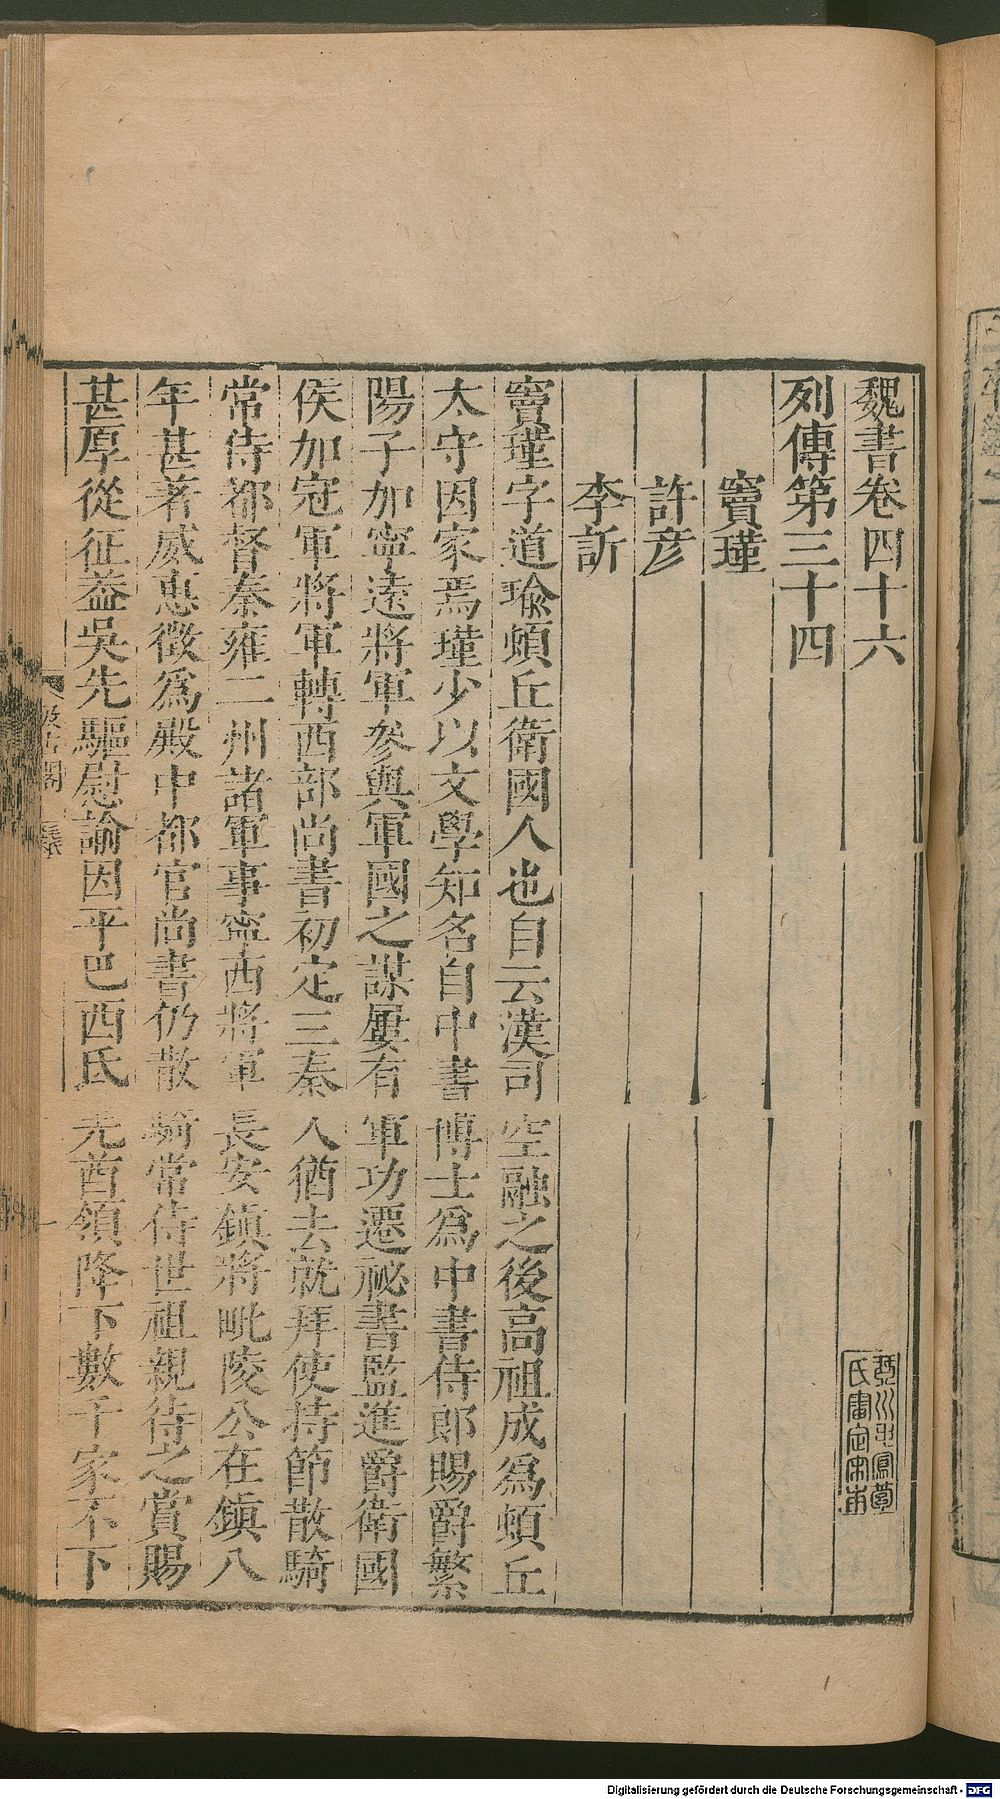 魏書卷四十六
列傳第三十四
竇瑾
許彦
李訢
竇瑾字道瑜頓丘衛國人也自云漢司空融之後高祖成爲頓丘
太守因家焉瑾少以文學知名自中書博士爲中書侍郎賜爵繁
陽子加寧遠將軍參與軍國之謀屢有軍功遷祕書監進爵衛國
侯加冠軍將軍轉西部尚書初定三秦人猶去就拜使持節散騎
常侍都督秦雍二州諸軍事寧西將軍長安鎮將毗陵公在鎮八
年甚著威惠徵爲殿中都官尚書仍散騎常侍世祖親待之賞賜
甚厚從征蓋吳先驅慰諭因平巴西氐羌酋領降下數千家不下
汲古閣
Digitalisierung gefördert durch die Deutsche Forschungsgemeinschaft - DFG